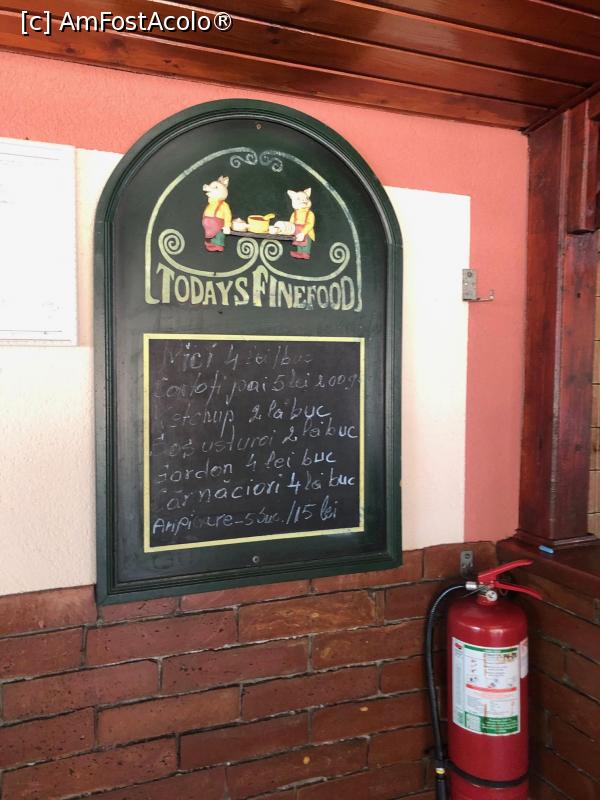 [c] AmFostAcolo®
TODAYS FINEFOOD
Mici 4 lei/buc
Cartofi pai 5 lei 200g
Ketchup 2 lei buc
Sos usturoi 2 lei buc
Gordon 4 lei buc
Cârnăciori 4 lei buc
Aripioare - 5 buc./15 lei